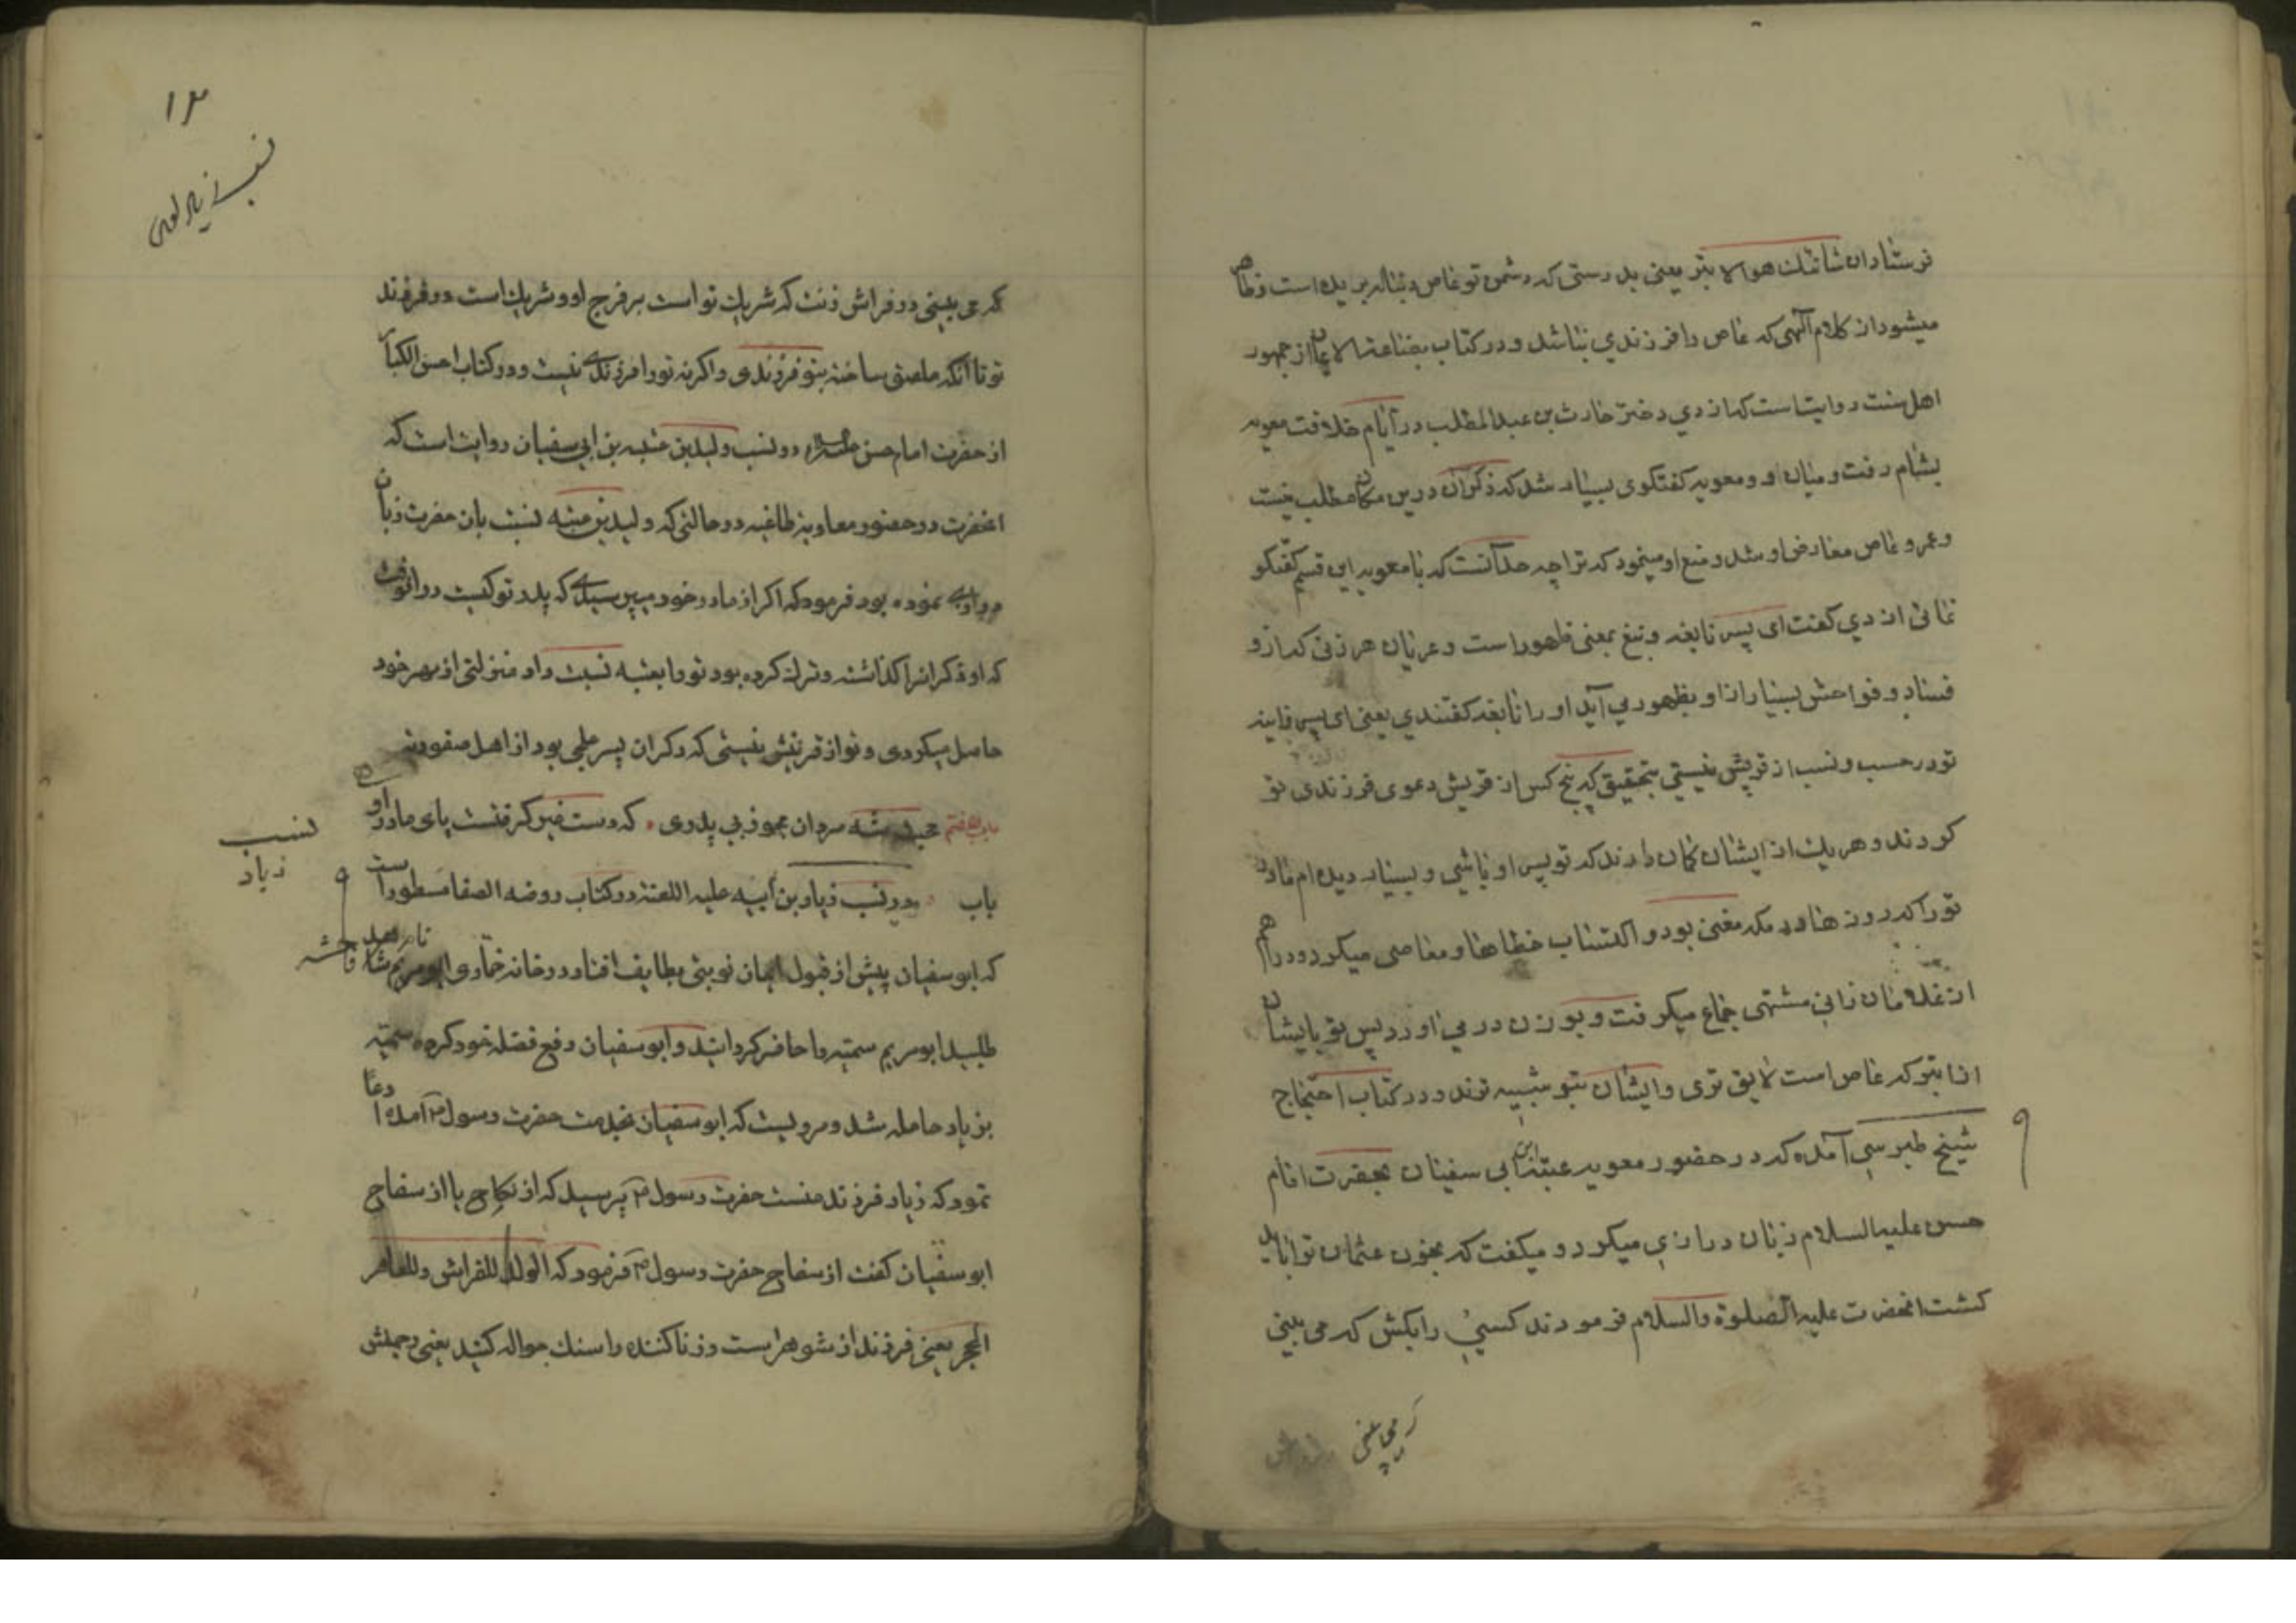 فرستاد ان شانئك هو الابتر یعنی بدرستی که دشمن تو عاص دنباله بریده است و ظاهر
میشود از کلام الهی که عاص را فرزندی نباشد و در کتاب بضاعة الایمان از جمهور
اهل سنت روایتست که از دی دختر حارث بن عبدالمطلب در ایام خلافت معویه
بشام رفت و میان او و معویه گفتگوی بسیار شد که ذکر آن درین مکان مطلب نیست
و عمرو عاص معارض او شد و منع او مینمود که ترا چه حد آنست که با معویه این قسم گفتگو
نمائی از دی گفت ای پسر نابغه و نبغ بمعنی ظهور است و عربان هر زنی که ازو
فساد و فواحش بسیار از او بظهور می آید او را نابغه گفتندی یعنی ای پسر فاینه
تو در حسب و نسب از قریش نیستی بتحقیق که پنج کس از قریش دعوی فرزندی تو
کردند و هر یك از ایشان گمان دارند که تو پسر او باشی و بسیار دیده ام مادر
تو را که روزها در مکه مغنی بود و اکتساب خطاها و معاصی میکرد و دراهم
از غلامان زانی مشتهی جماع میگرفت و بوزن در می اورد پس تو بایشان
از ابتر که عاص است لایق تری و ایشان بتو شبیه ترند و در کتاب احتجاج
شیخ طبرسی آمده که در حضور معویه عتبه ابن ابی سفیان بحضرت امام
حسن علیه السلام زبان درازی میکرد و میگفت که بخون عثمان تو را باید
کشت انحضرت علیه الصلوة والسلام فرمودند کسی را بکش که می بینی
که می بینی
۱۳
نسب زیاد
که می بینی در فراش زنت که شریك تو است بر فرج او و شریك است در فرزند
تو تا آنکه ملصق ساخته بتو فرزندی و اگر نه تو را فرزندی نیست و در کتاب احسن الکبار
از حضرت امام حسن علیه السلام در نسب ولید بن عتبه بن ابی سفیان روایت است که
انحضرت در حضور معاویه طاغیه در حالتی که ولید بن عتبه نسبت بان حضرت زبان
درازی نموده بود فرمود که اگر از مادر خود میپرسیدی که پدر تو کیست در انوقت
که او ذکرانرا گذاشته و ترك کرده بود تو را بعتبه نسبت داد منزلتی از بهر خود
حاصل میکردی و تو از قریش نیستی که ذکران پسر علجی بود از اهل صفوریه
باب هفتم مردان بی پدری که دست غیر گرفتست پای مادر او
نسب
زیاد
باب در نسب زیاد بن ابیه علیه اللعنه در کتاب روضه الصفا مسطور است
که ابو سفیان پیش از قبول ایمان نوبتی بطایف افتاد در خانه خماری ابو مریم نام
فاحشه
طلبید ابو مریم سمیه را حاضر گردانید و ابو سفیان رفع فضله خود کرده سمیه
بزیاد حامله شد و مرویست که ابو سفیان بخدمت حضرت رسول آمده ادعا
نمود که زیاد فرزند منست حضرت رسول پرسید که از نکاح یا از سفاح
ابو سفیان گفت از سفاح حضرت رسول فرمود که الولد للفراش وللعاهر
الحجر یعنی فرزند از شوهر است و زنا کننده را سنك حواله کنید یعنی رجمش